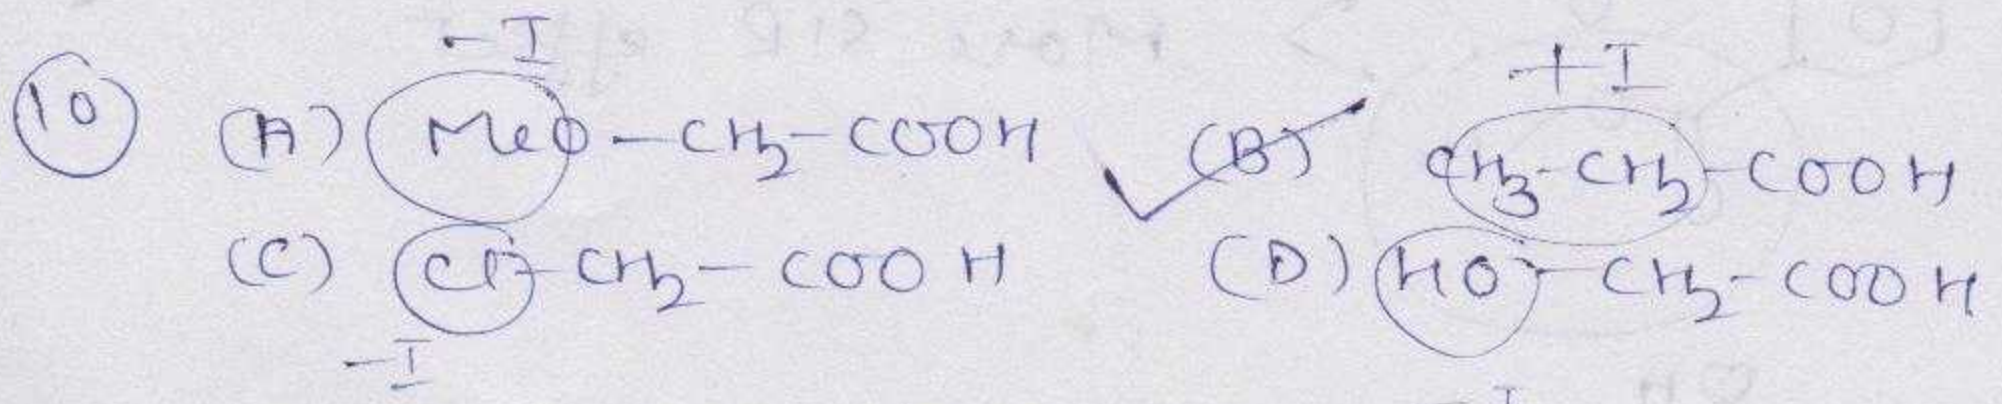 -I +I
(10) (A) MeO-CH2-COOH (B) CH3-CH2-COOH
(C) Cl-CH2-COOH (D) HO-CH2-COOH
-I